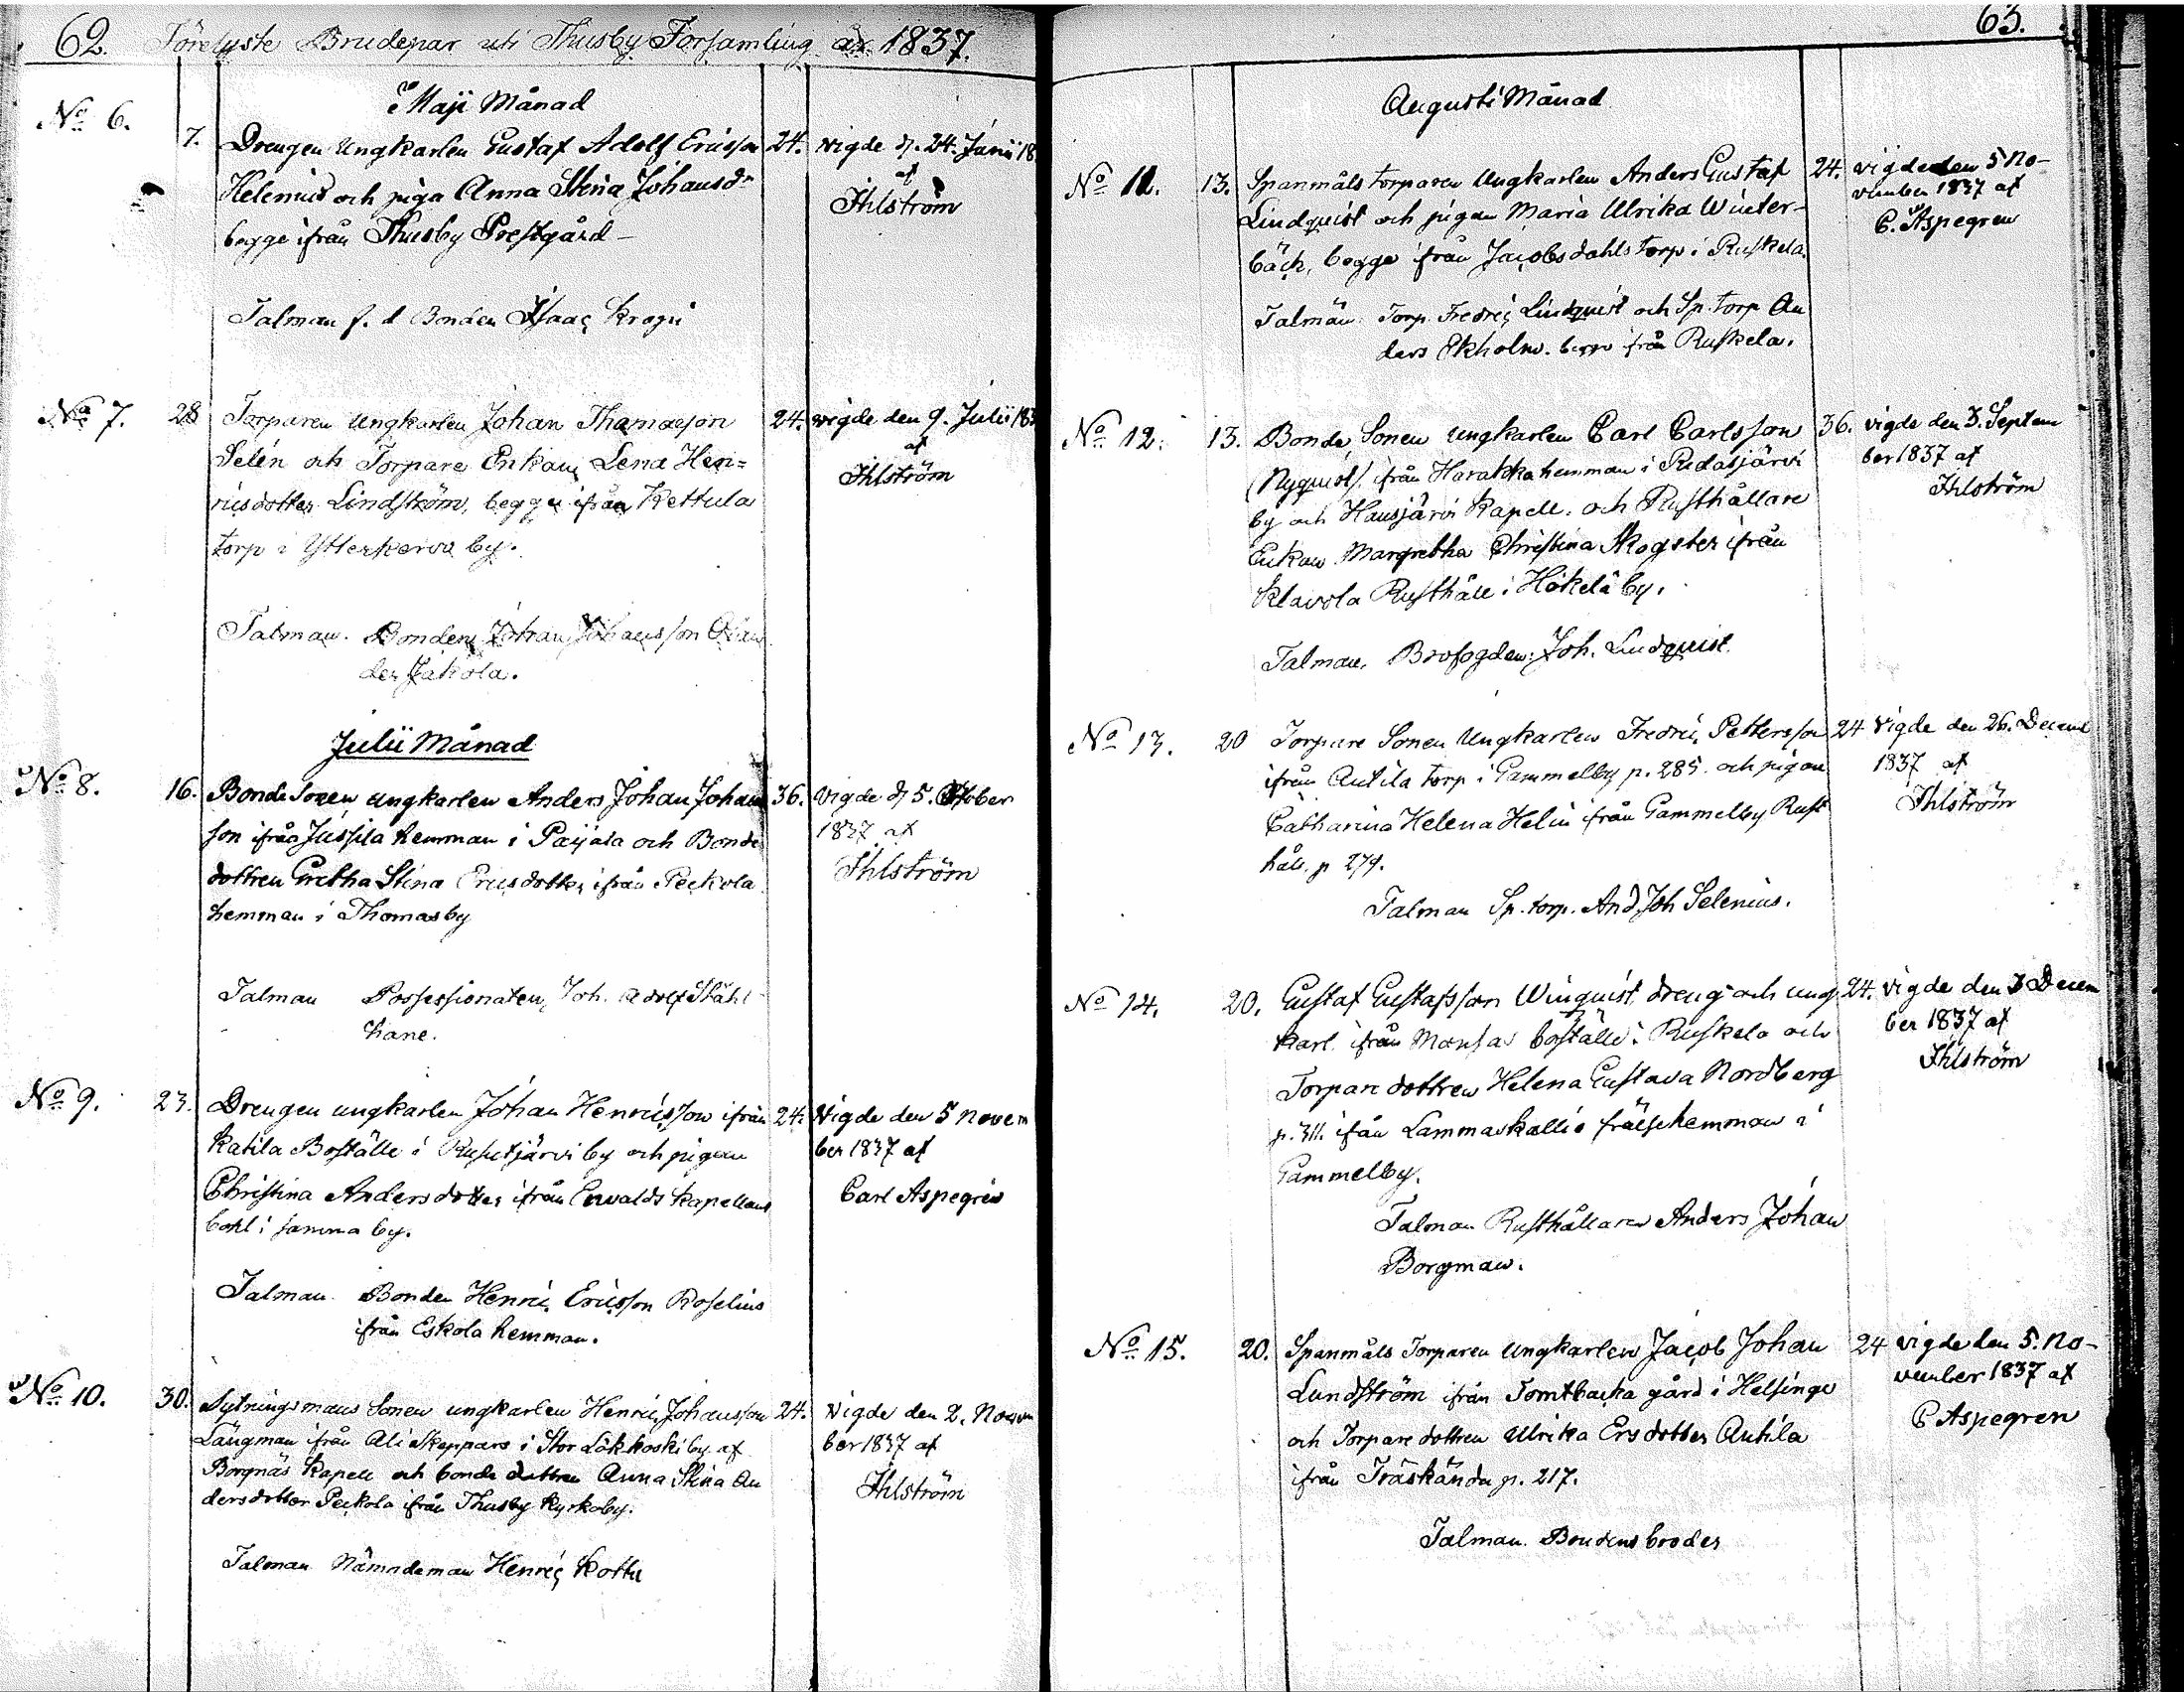 62. Förelyste Brudepar uti Thusby Församling år 1837.
Maji Månad
No 6.
7. Drengen Ungkarlen Gustaf Adolf Ericsson 24. vigde d. 24. Junii 18
Helenius och piga Anna Stina Johansdr af
begge ifrån Thusby Prestgård — Ihlström
Talman f. d Bonden Isaac Krogii
No 7. 28 Torparen Ungkarlen Johan Thomasson 24. vigde den 9. Julii 183
Selén och Torpare Enkan Lena Hen= af
ricsdotter Lindström, begge ifrån Kettula Ihlström
torp i Ytterkerva by.
Talman. Bonden Johan Johansson
der Jakola.
Julii Månad
No 8. 16. Bonde Sonen ungkarlen Anders Johan Johans 36. Vigde d 5. October
son ifrån Jussila hemman i Paijala och Bonde 1837 af
dottren Gretha Stina Ericsdotter ifrån Peckola Ihlström
hemman i Thomasby
Talman Possessionaten, Joh. Adolf Stähl-
hane.
No 9. 23. Drengen ungkarlen Johan Henricsson ifrån 24. Vigde den 5 Novem
Katila Boställe i Rusutjärvi by och pigan ber 1837 af
Christina Andersdotter ifrån Ewalds Kapellans Carl Aspegrén
bohl i samma by.
Talman. Bonden Henric Ericsson Roselius
ifrån Eskola hemman.
No 10. 30. Sytningsmans Sonen ungkarlen Henric Johansson 24. Vigde den 2. Novem
Långman ifrån Ali Skeppars i Stor Lökkoski by af ber 1837 af
Borgnäs Kapell och bonde dottren Anna Stina An Ihlström
dersdotter Peckola ifrån Thusby Kyrkoby.
Talman Nämndeman Henric Kottu
63.
Augusti Månad
No 11. 13. Spanmåls torparen Ungkarlen Anders Gustaf 24. vigde den 5 No-
Lindquist och pigan Maria Ulrika Winter- vember 1837 af
bäck, begge ifrån Jacobsdahls torp i Ruskela. C. Aspegren
Talmän Torp. Fredric Lindquist och Sp. torp An
ders Ekholm. begge från Ruskela.
No 12. 13. Bonde Sonen Ungkarlen Carl Carlsson 36. vigde den 3. Septem
(Nyquist). ifrån Harakka hemman i Ridasjärvi ber 1837 af
by och Hausjärvi Kapell. och Rusthållare Ihlström
Enkan Margretha Christina Skogster ifrån
Klavola Rusthåll i Hökelä by.
Talman. Brofogden Joh. Lindquist.
No 13. 20 Torpare Sonen Ungkarlen Fredric Pettersson 24 Vigde den 26. Decemb
ifrån Antila torp i Gammelby p. 285. och pigan 1837 af
Catharina Helena Helin ifrån Gammelby Rust Ihlström
håll. p 279.
Talman Sp. torp. And. Joh Selenius.
No 14. 20. Gustaf Gustafsson Winquist dreng och ung 24. vigde den 3 Decem
karl. ifrån Mansas boställe i Ruskela och ber 1837 af
Torpare dottren Helena Gustava Nordberg Ihlström
p. 311. ifån Lammaskallio frälsehemman i
Gammelby.
Talman Rusthållaren Anders Johan
Borgman.
No 15. 20. Spanmåls Torparen Ungkarlen Jacob Johan 24 vigde den 5. No-
Lundström ifrån Tomtbacka gård i Helsinge vember 1837 af
och Torpare dottren Ulrika Ersdotter Antila C Aspegren
ifrån Träskända p. 217.
Talman. Brudens broder